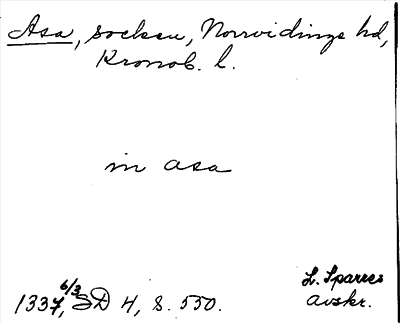 Asa, socken, Norrvidinge hd,
Kronob. l.
in asa
1337, 6/3 SD 4, s. 550.
L. Sparres
avskr.